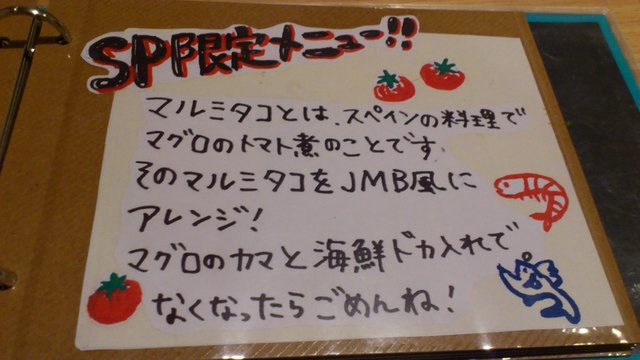 SP限定メニュー!!
マルミタコとは、スペインの料理で
マグロのトマト煮のことです
そのマルミタコをJMB風に
アレンジ!
マグロのカマと海鮮ドカ入れで
なくなったらごめんね!